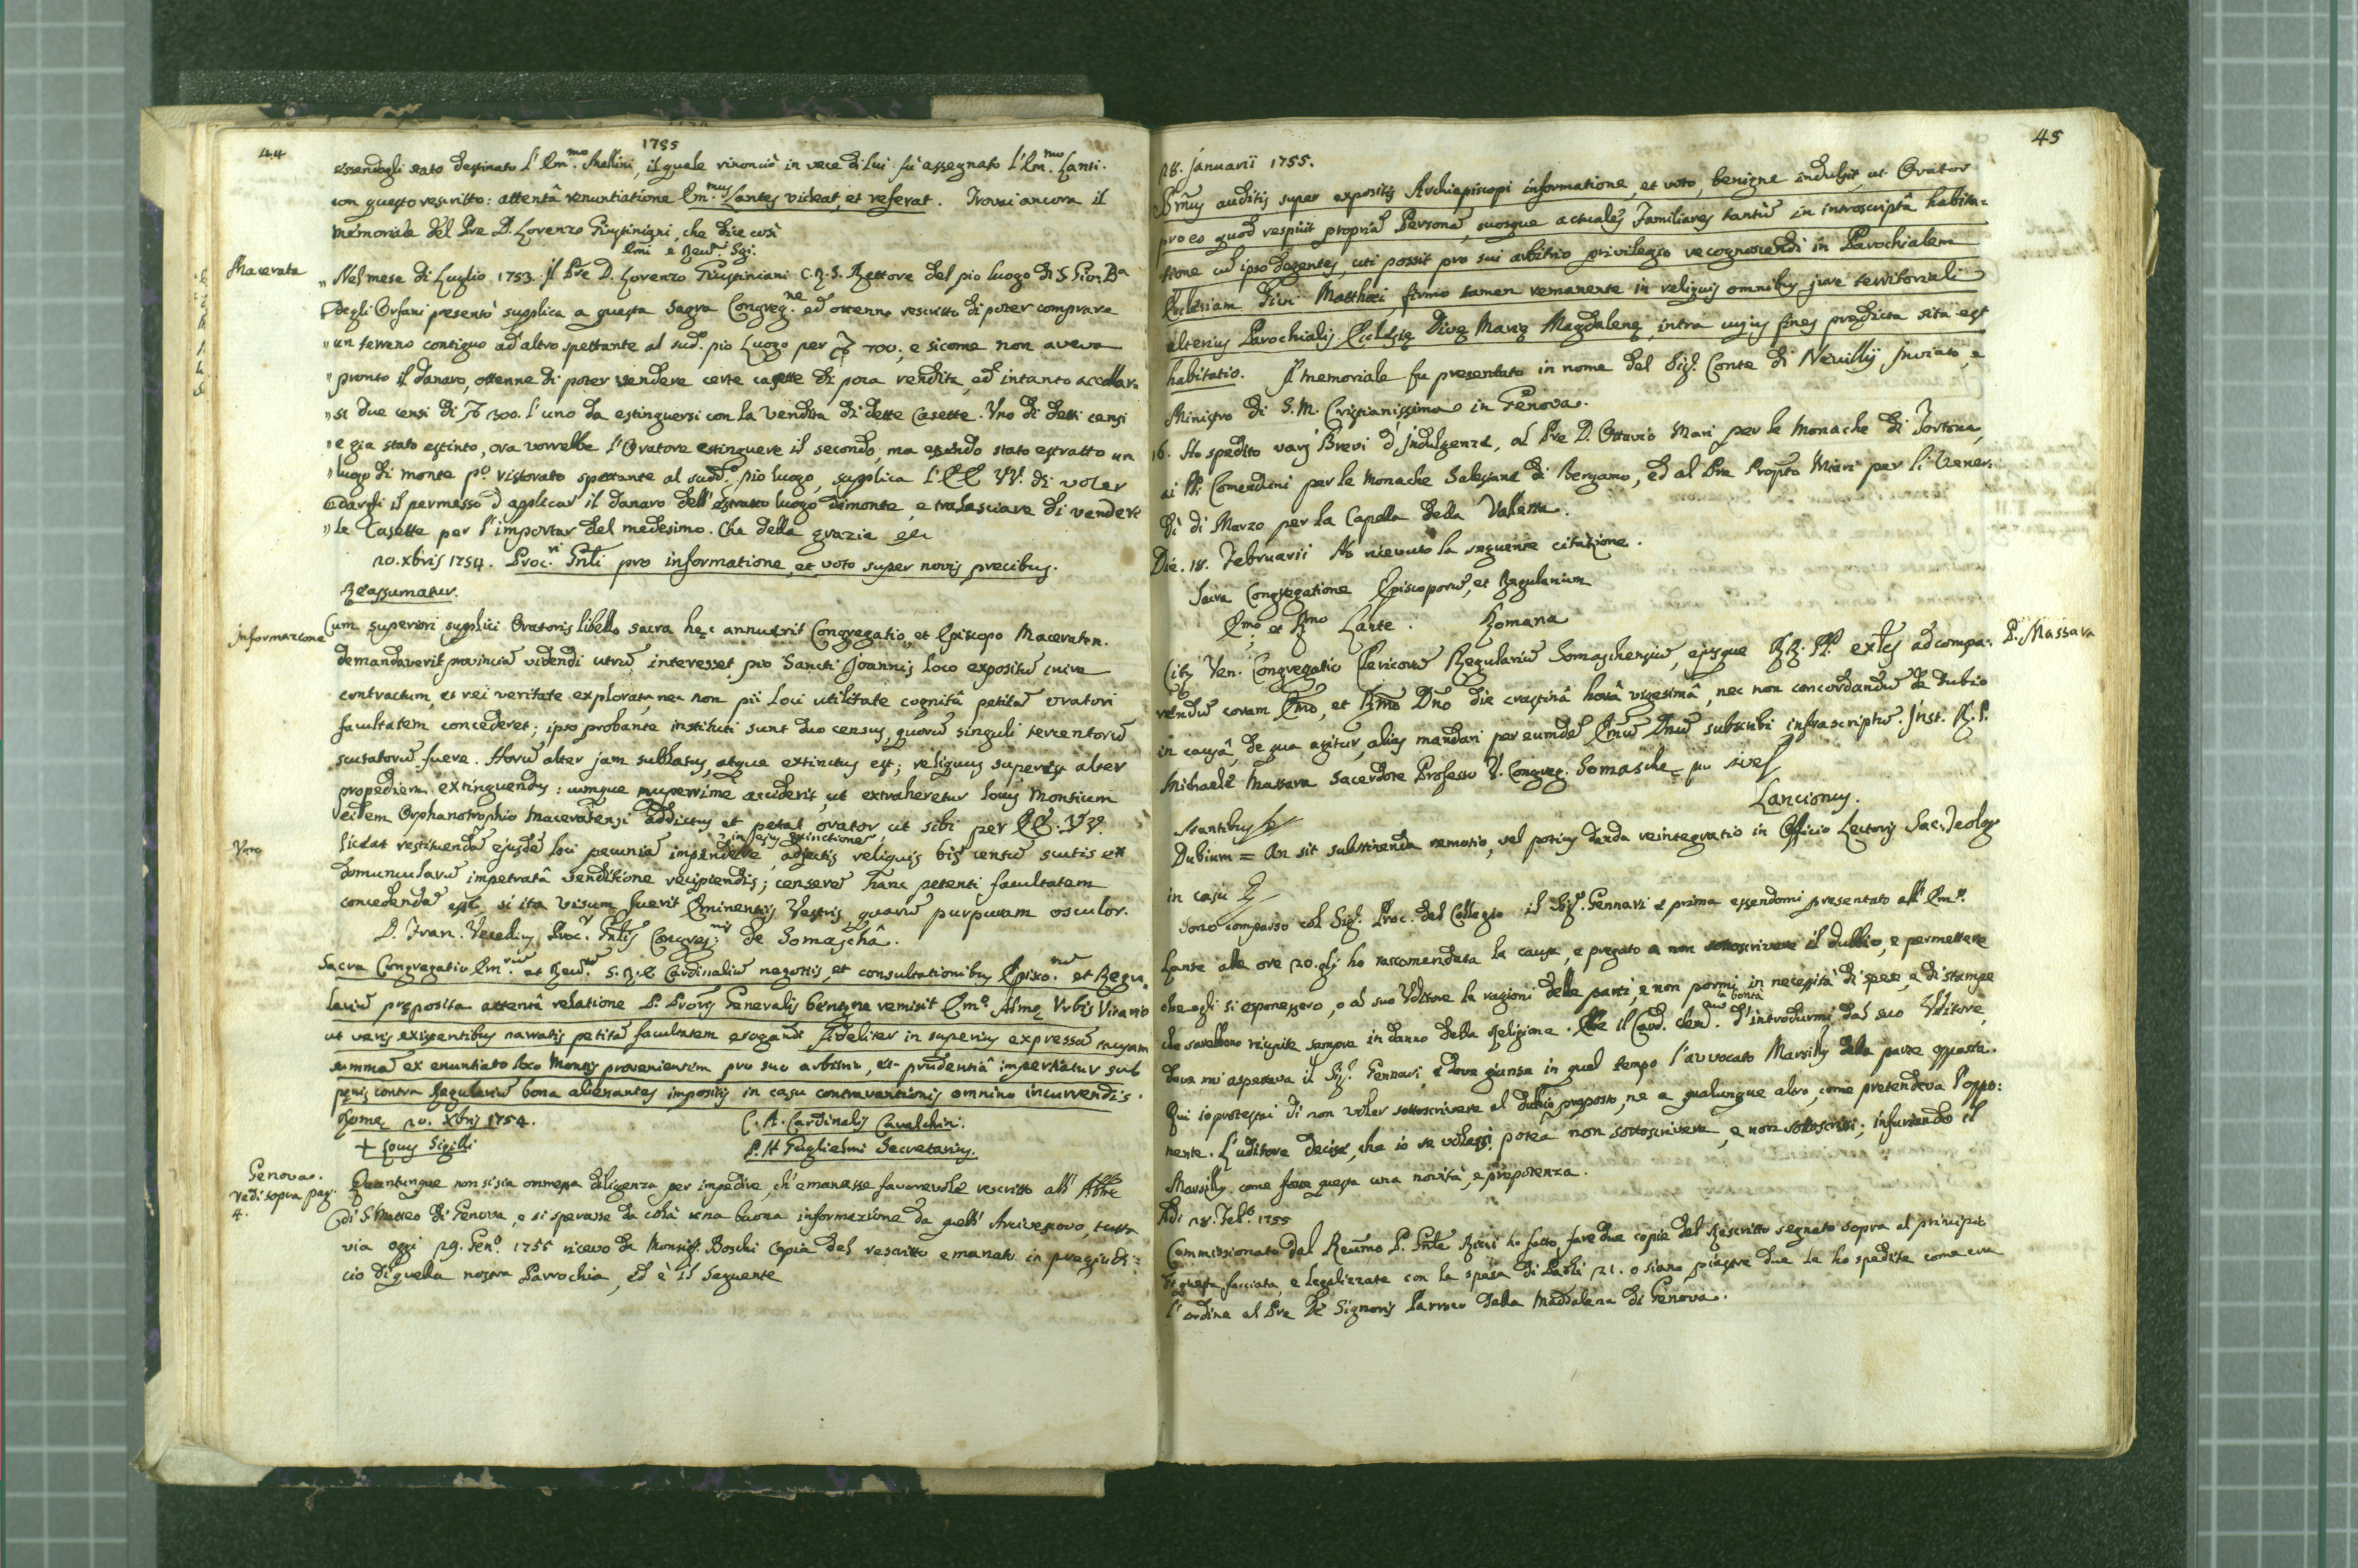 44
1755
essendogli stato destinato l'Em.mo Mellini, il quale rinonciò in vece di lui fù assegnato l'Em.mo Lanti.
con questo rescritto: attentâ renuntiatione Em.mus Lantes videat, et referat. Trovai ancora il
memoriale del Pre D. Lorenzo Giustiniani, che dice così
Emi e Revd. Sgi.
Macerata
„ Nel mese di Luglio 1753. il Pre D. Lorenzo Giustiniani C.R.S. Rettore del pio luogo di S. Gion. Ba
degli Orfani presentò supplica a questa Sagra Congreg.ne ed ottenne rescritto di poter comprare
„ un terreno contiguo ad altro spettante al sud. pio Luogo per 700; e sicome non aveva
„ pronto il danaro, ottenne di poter vendere certe casette di poca rendita, ed intanto accollar.
„ si due censi di 300. l'uno da estinguersi con la vendita di dette Casette. Uno di detti censi
„ e gia stato estinto, ora vorrebbe l'Oratore estinguere il secondo, ma essendo stato estratto un
„ luogo di monte po. ristorato spettante al sudd.o pio luogo, supplica l'EE VV. di voler
darghi il permesso d'applicar il danaro dell'estratto luogo dimonte, e tralasciare di vendere
„ le Casette per l'importar del medesimo. Che della grazia
20. xbris 1754. Proc.ri Gnli pro informatione, et voto super novis precibus.
Reassumatur.
Informazione
Cum superiori supplici Oratoris libello sacra hęc annuerit Congregatio, et Episcopo Maceraten.
demandaverit provinciã videndi utrũ interesset pro Sancti Joannis loco expositũ inire
contractum, et rei veritate explorata, nec non pii loci utilitate cognitâ petitã oratori
facultatem concederet; ipso probante instituti sunt duo census, quorũ singuli tercentorũ
scutatorũ fuere. Horũ alter jam sublatus, atque extinctus est; reliquus superest alter
propediem extinguendus: cumque nuperrime acciderit, ut extraheretur locus Montium
eidem Orphanotrophio Maceratensi addictus et petat orator ut sibi per EE. VV.
Voto
liceat restituendã ejusdẽ loci pecuniã impendere in hujus extinctione, adjectis reliquis bis centũ scutis ex
domuncularũ impetratâ venditione recipiendis; censerẽ hanc petenti facultatem
concedendã esse, si ita visum fuerit Eminentiis Vestris, quarũ purpuram osculor.
D. Fran. Vecelius Proc.r Gnlis Congreg.nis de Somaschâ.
Sacra Congregatio Em.rũ et Revd.rũ S. R. E. Cardinaliũ negotiis, et consultationibus Episco.rũ et Regu.
lariũ pręposita attentâ relatione P. Prõris Generalis benigne remisit Em.o Almę Urbis Vicario
ut veris existentibus narratis petitã facultatem erogandi fideliter in superius expressã causam
summã ex enuntiato loco Montis provenientem pro suo arbitrio, et prudentiâ impertiatur sub
pęnis contra Regulariũ bona alienantes impositis in casu contraventionis omnino incurrendis.
Romę 20. Xbris 1754.
C. A. Cardinalis Cavalchin.
+ Locus Sigilli
P. H. Guglielmi Secretarius.
Genova.
vedi sopra pag.
4.
Quantunque non si sia omessa diligenza per impedire, ch'emanasse favorevole rescritto all'Abbe
di S. Matteo di Genova, e si sperasse da colà una buona informazione da quell'Arcivescovo, tutta
via oggi 29. Gen.o 1755 ricevo da Monsig. Boschi Copia del rescritto emanato in pregiudi:
cio di quella nostra Parrochia, ed è il seguente
45
28. Januarii 1755.
Sm̃us auditis super expositis Archiepiscopi informatione, et voto, benigne indulsit, ut Orator
pro eo quod respicit propriã Personã, suosque actuales Familiares tantũ in introscriptâ habita=
tione cũ ipso degentes, uti possit pro sui arbitrio privilegio recognoscendi in Parochialem
Ecclesiam Divi Matthęi, firmo tamen remanente in reliquis omnibus jure territoriali
alterius Parochialis Ecclesię Divę Marię Magdalenę, intra cujus fines prędicta sita est
habitatio. Il memoriale fu presentato in nome del Sig. Conte di Neuilly Inviato, e
Ministro di S. M. Cristianissima in Genova.
16. Ho spedito varj Brevi d'Indulgenze, al Pre D. Ottavio Mari per le Monache di Tortona,
ai PP. Comendoni per le Monache Salesiane di Bergamo, ed al Pre Propto Mieri per li Vener:
dì di Marzo per la Capella della Valletta.
Die. 18. Februarii Ho ricevuto la seguente citazione.
Sacra Congregatione Episcoporũ, et Regularium
Em̃o et Rm̃o Lante. Romana
D. Massara
Citę Ven. Congregatio Clericorũ Regulariũ Somaschensiũ, ejusque RR. PP. exles ad compa:
rendũ coram Em̃o, et Rm̃o Dño die crastinâ horâ vigesimâ, nec non concordandũ de Dubio
in causâ, de qua agitur, alias mandari per eumdẽ Em̃ũ Dnũ subscribi infrascriptũ. Inst. R. P.
Michaele Massara Sacerdote Professo V. Congreg. Somaschę pu sive
Lancionus.
Stantibus
Dubium = An sit substinenda remotio, vel potius danda reintegratio in Officio Lectoris Sac. Teolog
in casu
Sono comparso col Sig. Proc. del Collegio il Sig. Gennari e prima essendomi presentato all'Em.o
Lante alle ore 20. gli ho raccomandata la causa, e pregato a non sottoscrivere il dubbio, e permettere
che egli si esponessero, o al suo Uditore le ragioni delle parti, e non pormi in necessità di spese, e di stampe
che sarebbono riuscite sempre in danno della Religione. Ebe il Card. la bontà d'introdurmi dal suo Uditore,
dove mi aspettava il Sig. Gennari, e dove giunse in quel tempo l'avvocato Marsilj della parte opposta.
Qui io protestai di non voler sottoscrivere al dubbio proposto, ne a qualunque altro, come pretendeva l'oppo:
nente. L'uditore decise, che io se volessi potea non sottoscrivere, e non sottoscrissi; infuriando il
Marsilj. come fosse questa una novità, e prepotenza.
Adi 28. Feb.o 1755
Commissionato dal Reũmo P. Gnle Ricci ho fatto fare due copie del Rescritto segnato sopra al principio
di questa facciata, e legalizzate con la spesa di Paoli 21. o siano piastre due le ho spedite come era
l'ordine al Pre De Signoris Parroco della Maddalena di Genova.